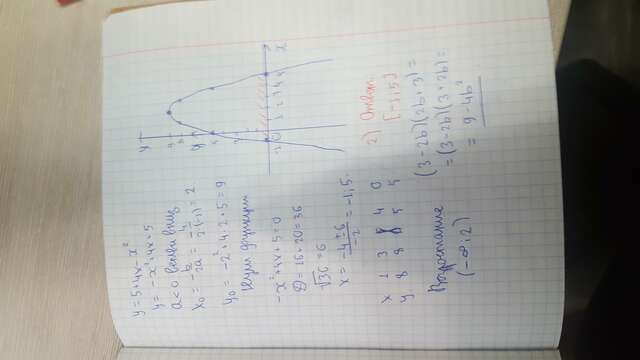 y = 5 + 4x - x²
y = -x² + 4x + 5
a < 0 ветви вниз
x₀ = -b/2a = -4/2·(-1) = 2
y₀ = -2² + 4·2 + 5 = 9
Нули функции
-x² + 4x + 5 = 0
D = 16 + 20 = 36
√36 = 6
x = -4±6/-2 = -1; 5.
x 1 3 4 0
y 8 8 5 5
Возрастание
(-∞; 2)
y
x
2) Ответ:
[-1; 5]
(3 - 2b)(2b + 3) =
= (3 - 2b)(3 + 2b) =
= 9 - 4b²